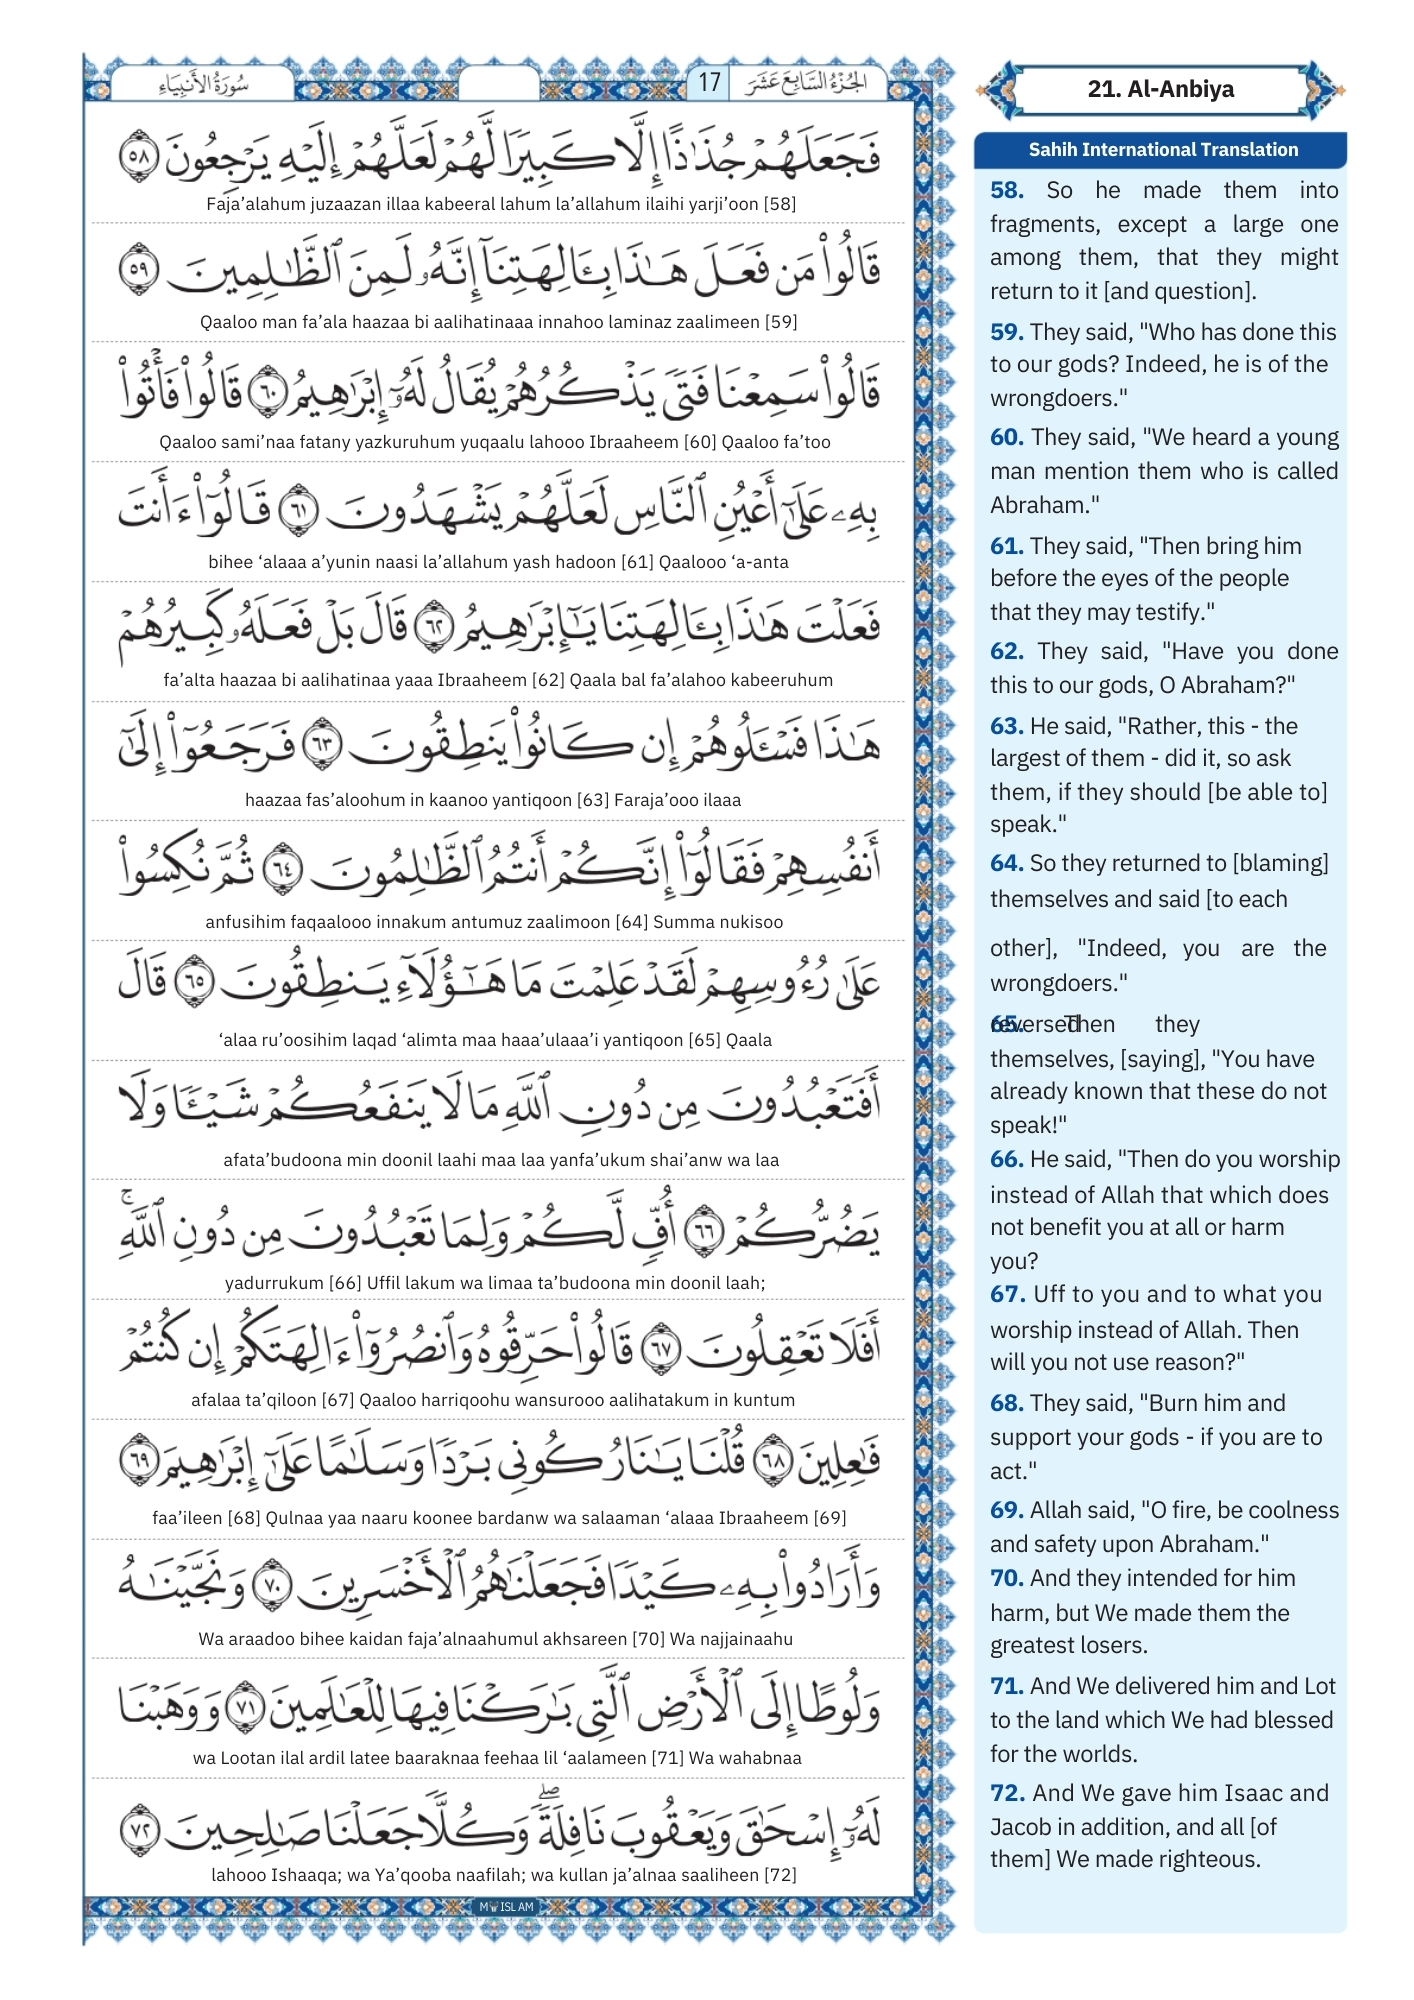 سُورَةُ الأَنبِيَاءِ
17
الجُزْءُ السَّابِعَ عَشَرَ
فَجَعَلَهُمْ جُذَٰذًا إِلَّا كَبِيرًا لَّهُمْ لَعَلَّهُمْ إِلَيْهِ يَرْجِعُونَ ٥٨
Faja’alahum juzaazan illaa kabeeral lahum la’allahum ilaihi yarji’oon [58]
قَالُوا۟ مَن فَعَلَ هَٰذَا بِـَٔالِهَتِنَآ إِنَّهُۥ لَمِنَ ٱلظَّٰلِمِينَ ٥٩
Qaaloo man fa’ala haazaa bi aalihatinaaa innahoo laminaz zaalimeen [59]
قَالُوا۟ سَمِعْنَا فَتًى يَذْكُرُهُمْ يُقَالُ لَهُۥٓ إِبْرَٰهِيمُ ٦٠ قَالُوا۟ فَأْتُوا۟
Qaaloo sami’naa fatany yazkuruhum yuqaalu lahooo Ibraaheem [60] Qaaloo fa’too
بِهِۦ عَلَىٰٓ أَعْيُنِ ٱلنَّاسِ لَعَلَّهُمْ يَشْهَدُونَ ٦١ قَالُوٓا۟ ءَأَنتَ
bihee ‘alaaa a’yunin naasi la’allahum yash hadoon [61] Qaalooo ‘a-anta
فَعَلْتَ هَٰذَا بِـَٔالِهَتِنَا يَٰٓإِبْرَٰهِيمُ ٦٢ قَالَ بَلْ فَعَلَهُۥ كَبِيرُهُمْ
fa’alta haazaa bi aalihatinaa yaaa Ibraaheem [62] Qaala bal fa’alahoo kabeeruhum
هَٰذَا فَسْـَٔلُوهُمْ إِن كَانُوا۟ يَنطِقُونَ ٦٣ فَرَجَعُوٓا۟ إِلَىٰٓ
haazaa fas’aloohum in kaanoo yantiqoon [63] Faraja’ooo ilaaa
أَنفُسِهِمْ فَقَالُوٓا۟ إِنَّكُمْ أَنتُمُ ٱلظَّٰلِمُونَ ٦٤ ثُمَّ نُكِسُوا۟
anfusihim faqaalooo innakum antumuz zaalimoon [64] Summa nukisoo
عَلَىٰ رُءُوسِهِمْ لَقَدْ عَلِمْتَ مَا هَٰٓؤُلَآءِ يَنطِقُونَ ٦٥ قَالَ
‘alaa ru’oosihim laqad ‘alimta maa haaa’ulaaa’i yantiqoon [65] Qaala
أَفَتَعْبُدُونَ مِن دُونِ ٱللَّهِ مَا لَا يَنفَعُكُمْ شَيْـًٔا وَلَا
afata’budoona min doonil laahi maa laa yanfa’ukum shai’anw wa laa
يَضُرُّكُمْ ٦٦ أُفٍّ لَّكُمْ وَلِمَا تَعْبُدُونَ مِن دُونِ ٱللَّهِ ۚ
yadurrukum [66] Uffil lakum wa limaa ta’budoona min doonil laah;
أَفَلَا تَعْقِلُونَ ٦٧ قَالُوا۟ حَرِّقُوهُ وَٱنصُرُوٓا۟ ءَالِهَتَكُمْ إِن كُنتُمْ
afalaa ta’qiloon [67] Qaaloo harriqoohu wansurooo aalihatakum in kuntum
فَٰعِلِينَ ٦٨ قُلْنَا يَٰنَارُ كُونِى بَرْدًا وَسَلَٰمًا عَلَىٰٓ إِبْرَٰهِيمَ ٦٩
faa’ileen [68] Qulnaa yaa naaru koonee bardanw wa salaaman ‘alaaa Ibraaheem [69]
وَأَرَادُوا۟ بِهِۦ كَيْدًا فَجَعَلْنَٰهُمُ ٱلْأَخْسَرِينَ ٧٠ وَنَجَّيْنَٰهُ
Wa araadoo bihee kaidan faja’alnaahumul akhsareen [70] Wa najjainaahu
وَلُوطًا إِلَى ٱلْأَرْضِ ٱلَّتِى بَٰرَكْنَا فِيهَا لِلْعَٰلَمِينَ ٧١ وَوَهَبْنَا
wa Lootan ilal ardil latee baaraknaa feehaa lil ‘aalameen [71] Wa wahabnaa
لَهُۥٓ إِسْحَٰقَ وَيَعْقُوبَ نَافِلَةً ۖ وَكُلًّا جَعَلْنَا صَٰلِحِينَ ٧٢
lahooo Ishaaqa; wa Ya’qooba naafilah; wa kullan ja’alnaa saaliheen [72]
MYISLAM
21. Al-Anbiya
Sahih International Translation
58. So he made them into
fragments, except a large one
among them, that they might
return to it [and question].
59. They said, "Who has done this
to our gods? Indeed, he is of the
wrongdoers."
60. They said, "We heard a young
man mention them who is called
Abraham."
61. They said, "Then bring him
before the eyes of the people
that they may testify."
62. They said, "Have you done
this to our gods, O Abraham?"
63. He said, "Rather, this - the
largest of them - did it, so ask
them, if they should [be able to]
speak."
64. So they returned to [blaming]
themselves and said [to each
other], "Indeed, you are the
wrongdoers."
65. Then they reversed
themselves, [saying], "You have
already known that these do not
speak!"
66. He said, "Then do you worship
instead of Allah that which does
not benefit you at all or harm
you?
67. Uff to you and to what you
worship instead of Allah. Then
will you not use reason?"
68. They said, "Burn him and
support your gods - if you are to
act."
69. Allah said, "O fire, be coolness
and safety upon Abraham."
70. And they intended for him
harm, but We made them the
greatest losers.
71. And We delivered him and Lot
to the land which We had blessed
for the worlds.
72. And We gave him Isaac and
Jacob in addition, and all [of
them] We made righteous.